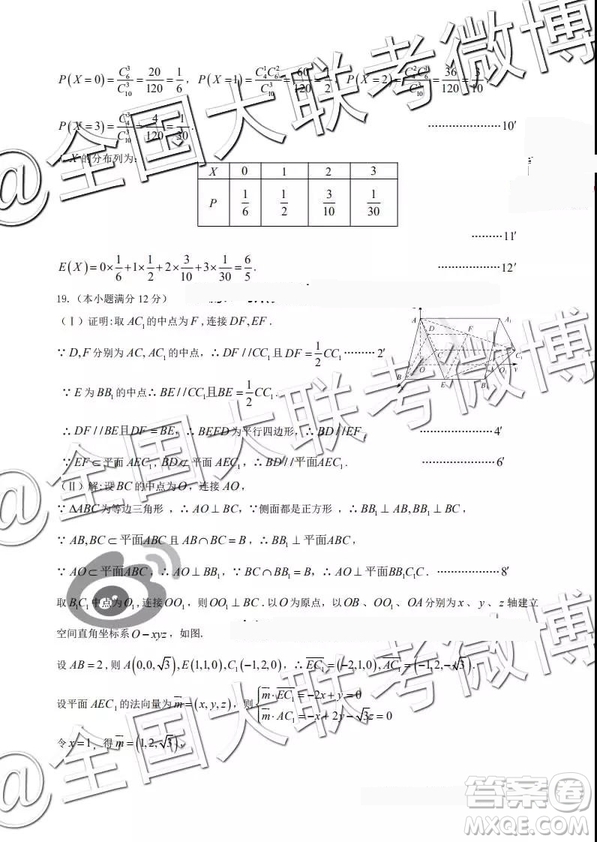 P(X=0)=C₆³/C₁₀³=20/120=1/6, P(X=1)=C₄¹C₆²/C₁₀³=60/120=1/2, P(X=2)=C₄²C₆¹/C₁₀³=36/120=3/10
P(X=3)=C₄³/C₁₀³=4/120=1/30. ……………………10′
X的分布列为:
X 0 1 2 3
P 1/6 1/2 3/10 1/30
………11′
E(X)=0×1/6+1×1/2+2×3/10+3×1/30=6/5. ………12′
19.（本小题满分12分）
(Ⅰ)证明:取AC₁的中点为F,连接DF,EF.
∵D,F分别为AC,AC₁的中点,∴DF//CC₁且DF=1/2CC₁………2′
∵E为BB₁的中点∴BE//CC₁且BE=1/2CC₁
∴DF//BE且DF=BE,∴BEFD为平行四边形,∴BD//EF. ……………………4′
∵EF⊂平面AEC₁,BD⊄平面AEC₁,∴BD//平面AEC₁. ……………………6′
(Ⅱ)解:设BC的中点为O,连接AO,
∵ΔABC为等边三角形,∴AO⊥BC,∵侧面都是正方形,∴BB₁⊥AB,BB₁⊥BC
∵AB,BC⊂平面ABC且AB∩BC=B,∴BB₁⊥平面ABC,
∵AO⊂平面ABC,∴AO⊥BB₁,∵BC∩BB₁=B,∴AO⊥平面BB₁C₁C. ……………………8′
取B₁C₁中点为O₁,连接OO₁,则OO₁⊥BC.以O为原点,以OB、OO₁、OA分别为x、y、z轴建立
空间直角坐标系O−xyz,如图.
设AB=2,则A(0,0,√3),E(1,1,0),C₁(−1,2,0),∴EC₁=(−2,1,0),AC₁=(−1,2,−√3).
设平面AEC₁的法向量为m=(x,y,z),则{m·EC₁=−2x+y=0
m·AC₁=−x+2y−√3z=0
令x=1,得m=(1,2,√3),
@全国大联考微博
@全国大联考微博
@全国大联考微博
答案圈
MXQE.COM